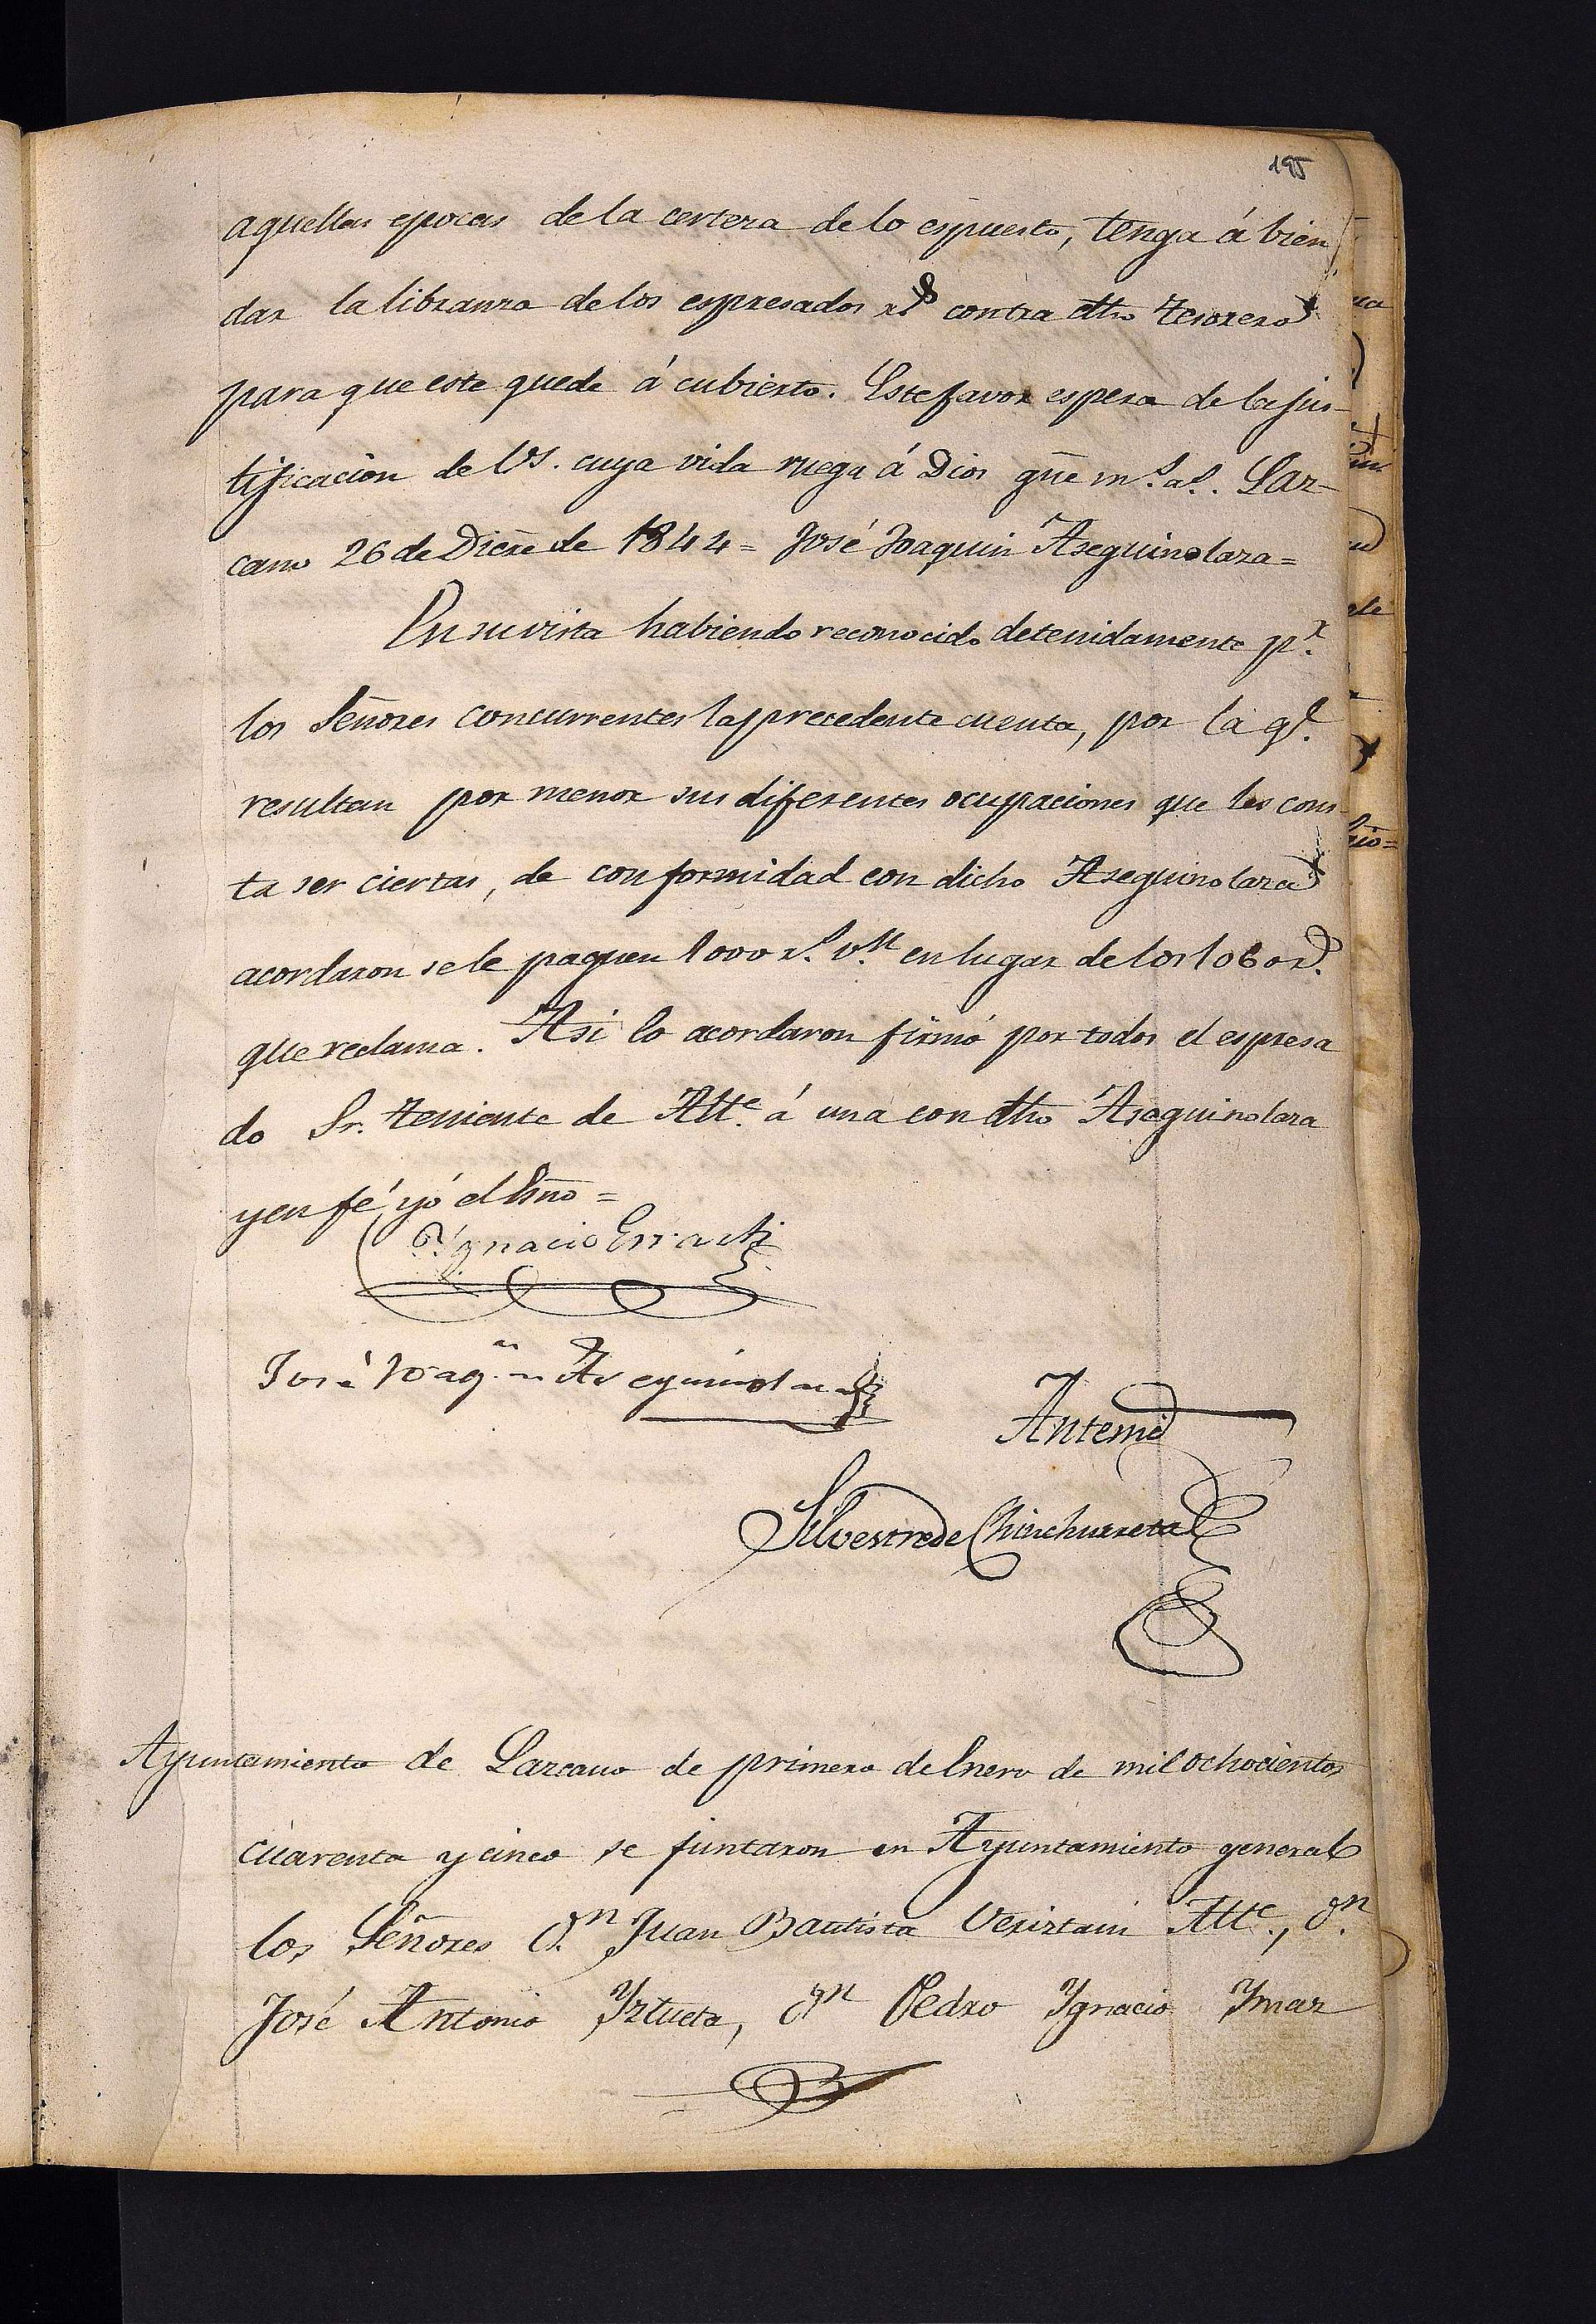 195
aquellas epocas de la certeza de lo espuesto, tenga á bien
dar la libranza de los espresados rs contra dho tesorero
para que este quede á cubierto. Este favor espera de la jus-
tificacion de VS. cuya vida ruega á Dios gũe ms. as. Laz-
cano 26 de Dicẽ de 1844 = José Joaquin Aseguinolaza =
En su vista habiendo reconocido detenidamente pr.
los Señores concurrentes la precedente cuenta, por la ql.
resultan por menor sus diferentes ocupaciones que les cons-
ta ser ciertas, de conformidad con dicho Aseguinolaza
acordaron se le paguen 1000 rs. vn. en lugar de los 1060 rs.
que reclama. Asi lo acordaron firmó por todos el espresa
do Sr. teniente de Alle. á una con dho Aseguinolaza
y en fé yó el Esño =
Ygnacio Errasti
José Joaqn. Aseguinolaza
Antemi
Silvestre de Chinchurreta
Ayuntamiento de Lazcano de primero de Enero de mil ochocientos
cuarenta y cinco se juntaron en Ayuntamiento general
los Señores Dn. Juan Bautista Verirtain Alle., Dn.
José Antonio Yztueta, Dn Pedro Ygnacio Ymaz